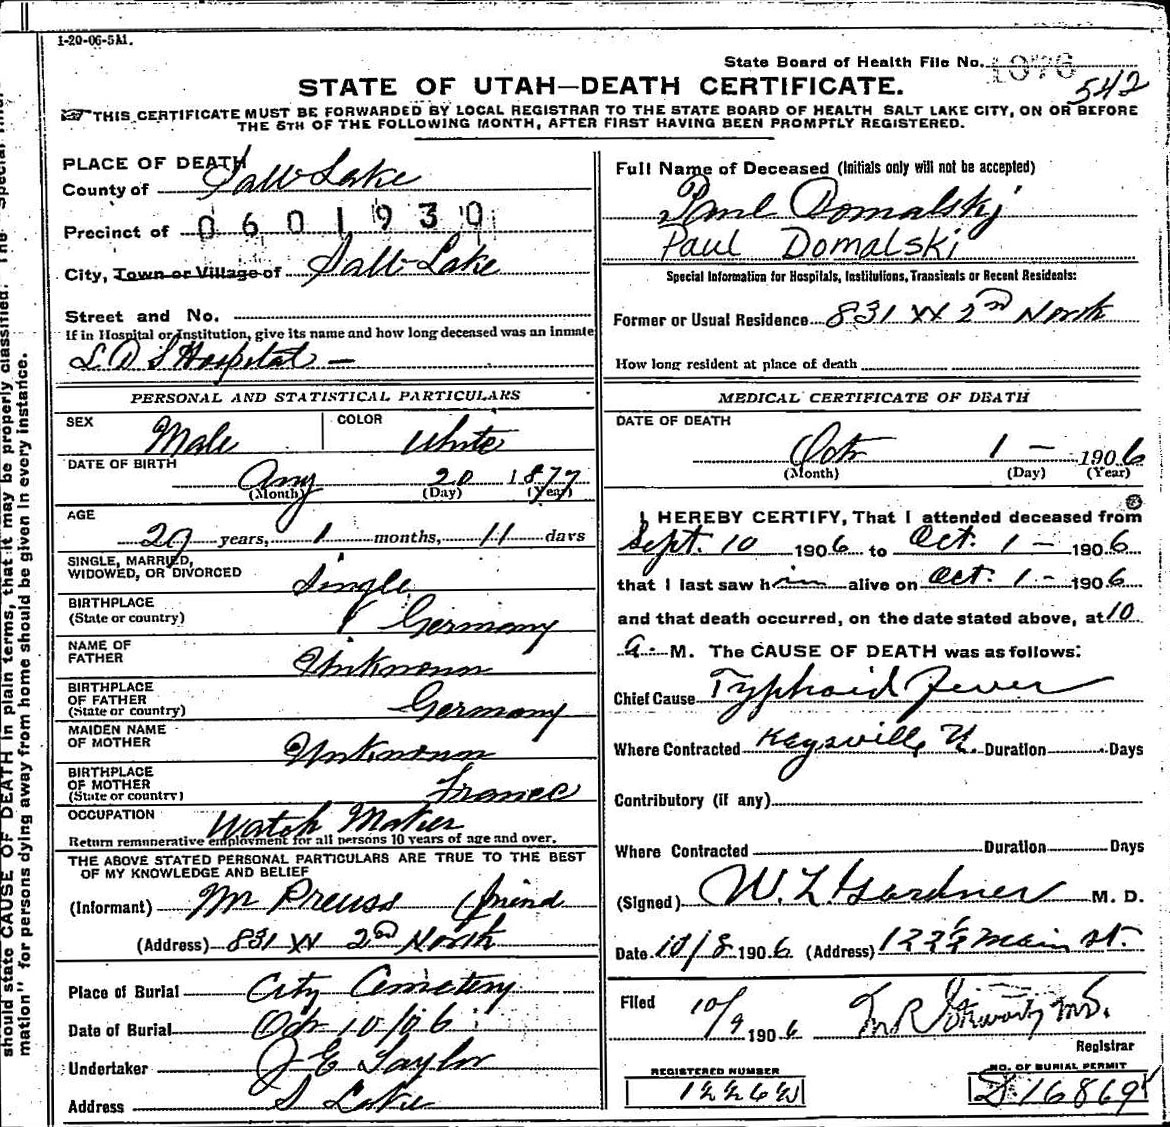 1-20-06-5M.
State Board of Health File No. 1076
542
STATE OF UTAH—DEATH CERTIFICATE.
THIS CERTIFICATE MUST BE FORWARDED BY LOCAL REGISTRAR TO THE STATE BOARD OF HEALTH SALT LAKE CITY, ON OR BEFORE
THE 5TH OF THE FOLLOWING MONTH, AFTER FIRST HAVING BEEN PROMPTLY REGISTERED.
PLACE OF DEATH
County of Salt Lake
Precinct of 0601930
City, Town or Village of Salt Lake
Street and No.
If in Hospital or Institution, give its name and how long deceased was an inmate
L D S Hospital —
Full Name of Deceased (Initials only will not be accepted)
Paul Domalski
Paul Domalski
Special Information for Hospitals, Institutions, Transients or Recent Residents:
Former or Usual Residence 831 W 2nd North
How long resident at place of death
PERSONAL AND STATISTICAL PARTICULARS
SEX Male COLOR White
DATE OF BIRTH Aug 20 1877
(Month) (Day) (Year)
AGE
29 years, 1 months, 11 days
SINGLE, MARRIED,
WIDOWED, OR DIVORCED Single
BIRTHPLACE
(State or country) Germany
NAME OF
FATHER Unknown
BIRTHPLACE
OF FATHER
(State or country) Germany
MAIDEN NAME
OF MOTHER Unknown
BIRTHPLACE
OF MOTHER
(State or country) France
OCCUPATION Watch Maker
Return remunerative employment for all persons 10 years of age and over.
THE ABOVE STATED PERSONAL PARTICULARS ARE TRUE TO THE BEST
OF MY KNOWLEDGE AND BELIEF
(Informant) Mr Preuss friend
(Address) 831 W 2nd North
Place of Burial City Cemetery
Date of Burial Oct 10/06
Undertaker J. E Taylor
Address S Lake
MEDICAL CERTIFICATE OF DEATH
DATE OF DEATH
Oct 1 — 1906
(Month) (Day) (Year)
I HEREBY CERTIFY, That I attended deceased from
Sept. 10 1906 to Oct. 1 — 1906
that I last saw him alive on Oct. 1 — 1906
and that death occurred, on the date stated above, at 10
a. M. The CAUSE OF DEATH was as follows:
Chief Cause Typhoid Fever
Where Contracted Kaysville U. Duration Days
Contributory (if any)
Where Contracted Duration Days
(Signed) W. L Gardner M. D.
Date 10/8 1906 (Address) 122½ Main st.
Filed 10/9 1906
Registrar
REGISTERED NUMBER
NO. OF BURIAL PERMIT
D 16869
should state CAUSE OF DEATH in plain terms, that it may be properly classified. The "Special
mation" for persons dying away from home should be given in every instance.